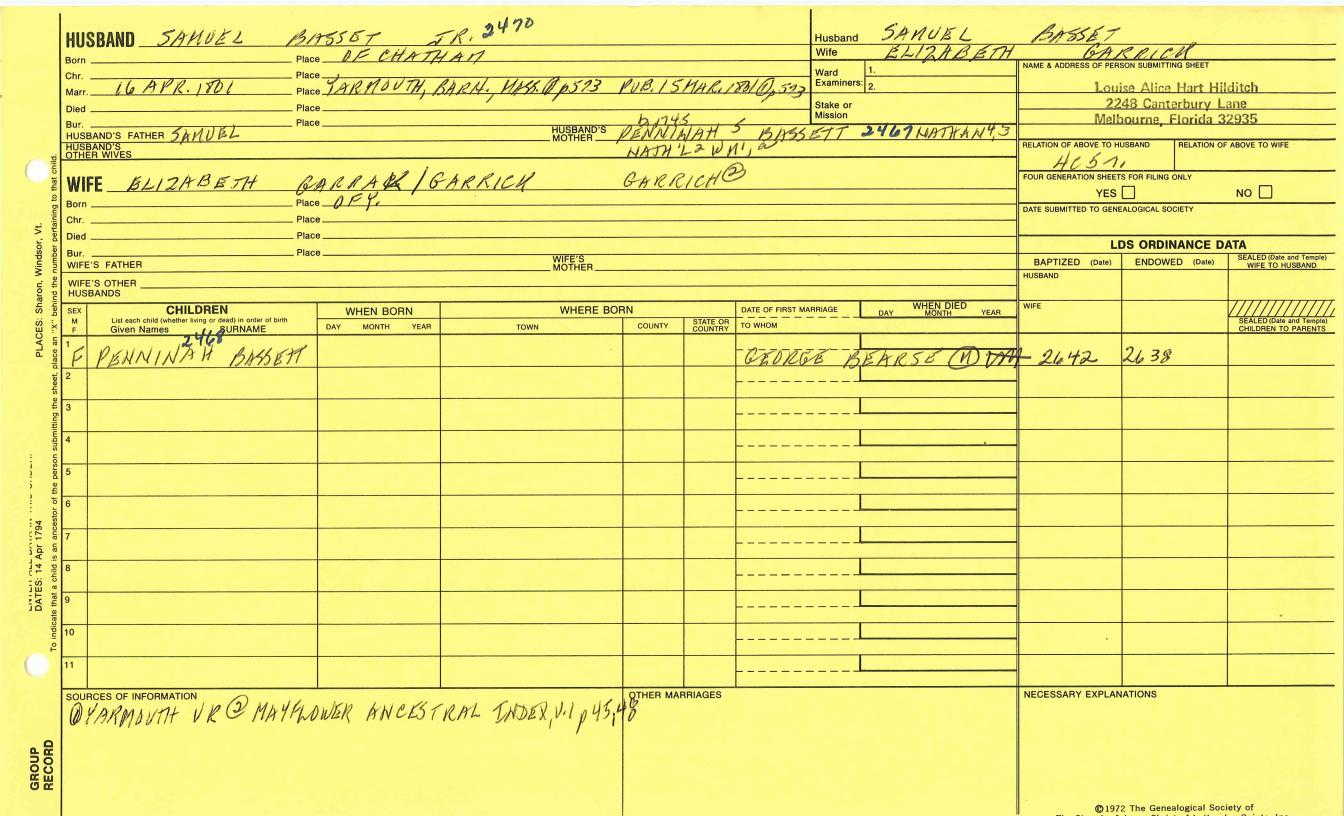 HUSBAND SAMUEL BASSET JR. 2470
Born Place OF CHATHAM
Chr. Place
Marr. 16 APR. 1801 Place YARMOUTH, BARN., MASS. ① p573 PUB. 15 MAR. 1801 ① p573
Died Place
Bur. Place
b 1745
HUSBAND'S FATHER SAMUEL HUSBAND'S MOTHER PENNINAH 5 BASSETT 2467 NATHAN 4,3
HUSBAND'S OTHER WIVES NATH'L 2 WM 1,
WIFE ELIZABETH GARRAK / GARRICK GARRICH ②
Born Place OF Y.
Chr. Place
Died Place
Bur. Place
WIFE'S FATHER WIFE'S MOTHER
WIFE'S OTHER HUSBANDS
Husband SAMUEL BASSET
Wife ELIZABETH GARRICK
Ward Examiners: 1.
2.
Stake or Mission
NAME & ADDRESS OF PERSON SUBMITTING SHEET
Louise Alice Hart Hilditch
2248 Canterbury Lane
Melbourne, Florida 32935
RELATION OF ABOVE TO HUSBAND RELATION OF ABOVE TO WIFE
FOUR GENERATION SHEETS FOR FILING ONLY
YES NO
DATE SUBMITTED TO GENEALOGICAL SOCIETY
LDS ORDINANCE DATA
BAPTIZED (Date) ENDOWED (Date) SEALED (Date and Temple) WIFE TO HUSBAND
HUSBAND
WIFE
SEALED (Date and Temple) CHILDREN TO PARENTS
SEX M F
CHILDREN
List each child (whether living or dead) in order of birth
Given Names SURNAME
WHEN BORN
DAY MONTH YEAR
WHERE BORN
TOWN COUNTY STATE OR COUNTRY
DATE OF FIRST MARRIAGE
TO WHOM
WHEN DIED
DAY MONTH YEAR
2468
1 F PENNINAH BASSETT GEORGE BEARSE 2642 2638
2
3
4
5
6
7
8
9
10
11
SOURCES OF INFORMATION
① YARMOUTH VR ② MAYFLOWER ANCESTRAL INDEX, V.1 p 45,48
OTHER MARRIAGES
NECESSARY EXPLANATIONS
©1972 The Genealogical Society of
PLACES: Sharon, Windsor, Vt.
DATES: 14 Apr 1794
To indicate that a child is an ancestor of the person submitting the sheet, place an "X" behind the number pertaining to that child.
GROUP RECORD